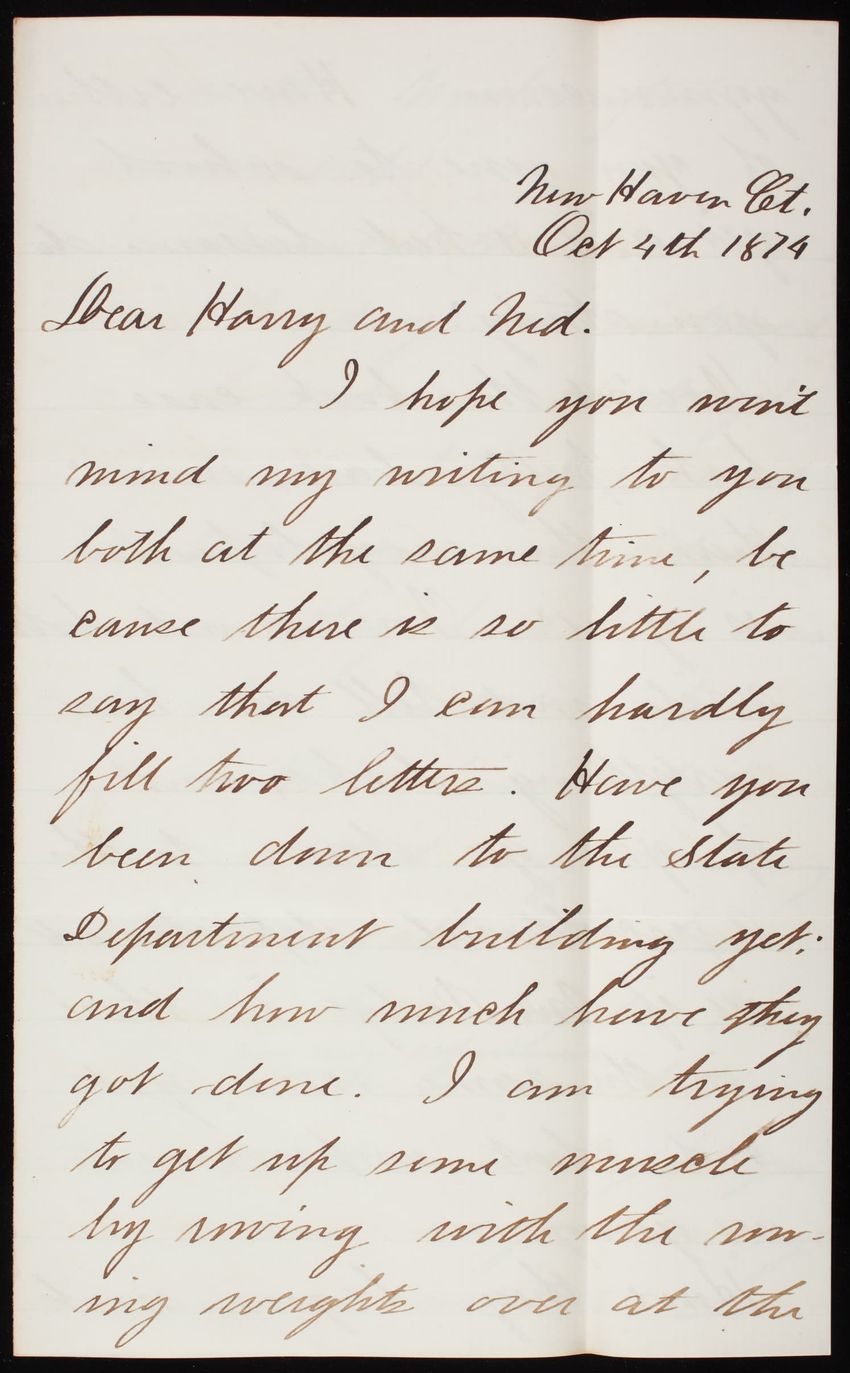 New Haven Ct.
Oct 4th 1874
Dear Harry and Ned.
I hope you won't
mind my writing to you
both at the same time, be
cause there is so little to
say that I can hardly
fill two letters. Have you
been down to the State
Department building yet;
and how much have they
got done. I am trying
to get up some muscle
by rowing with the row-
ing weights over at the